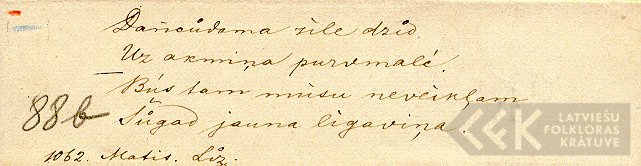 Dancůdama zīle dzīd
Uz akmiņa purvmalē.
Būs tam mūsu neveikļam
88b Šůgad jauna līgaviņa.
1062. Matis. Līz.
LATVIEŠU
FOLKLORAS
KRĀTUVE